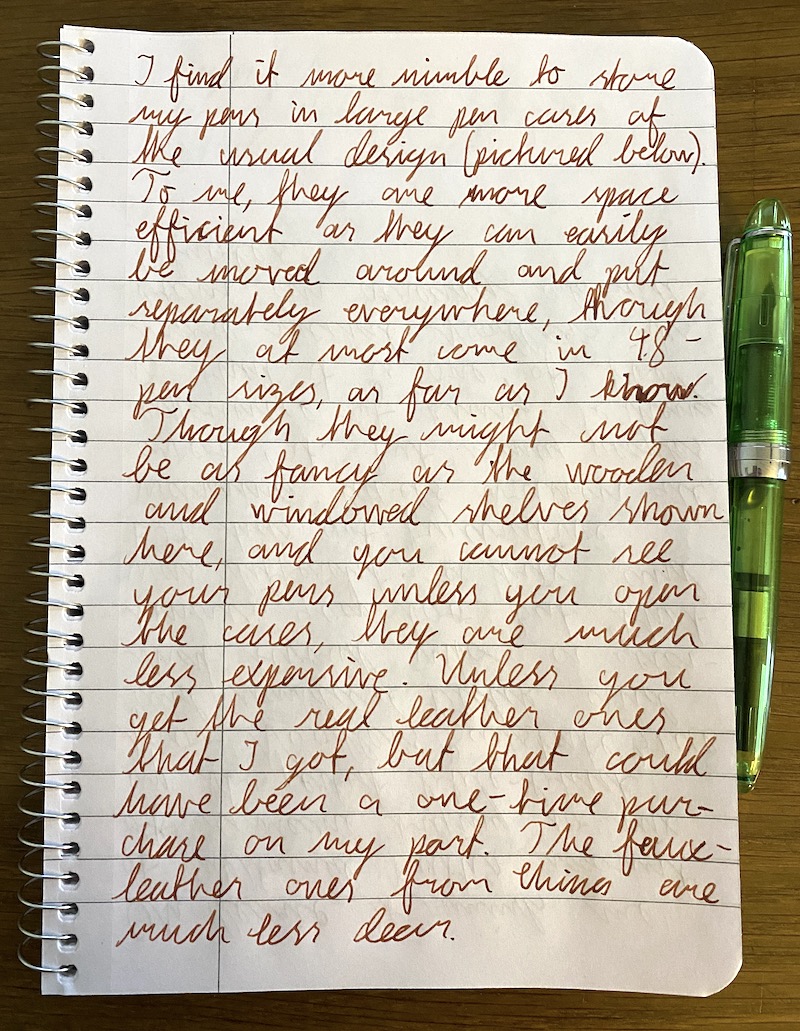 I find it more nimble to store
my pens in large pen cases of
the usual design (pictured below).
To me, they are more space
efficient as they can easily
be moved around and put
separately everywhere, though
they at most come in 48-
pen sizes, as far as I know.
Though they might not
be as fancy as the wooden
and windowed shelves shown
here, and you cannot see
your pens unless you open
the cases, they are much
less expensive. Unless you
get the real leather ones
that I got, but that could
have been a one-time pur-
chase on my part. The faux-
leather ones from China are
much less dear.